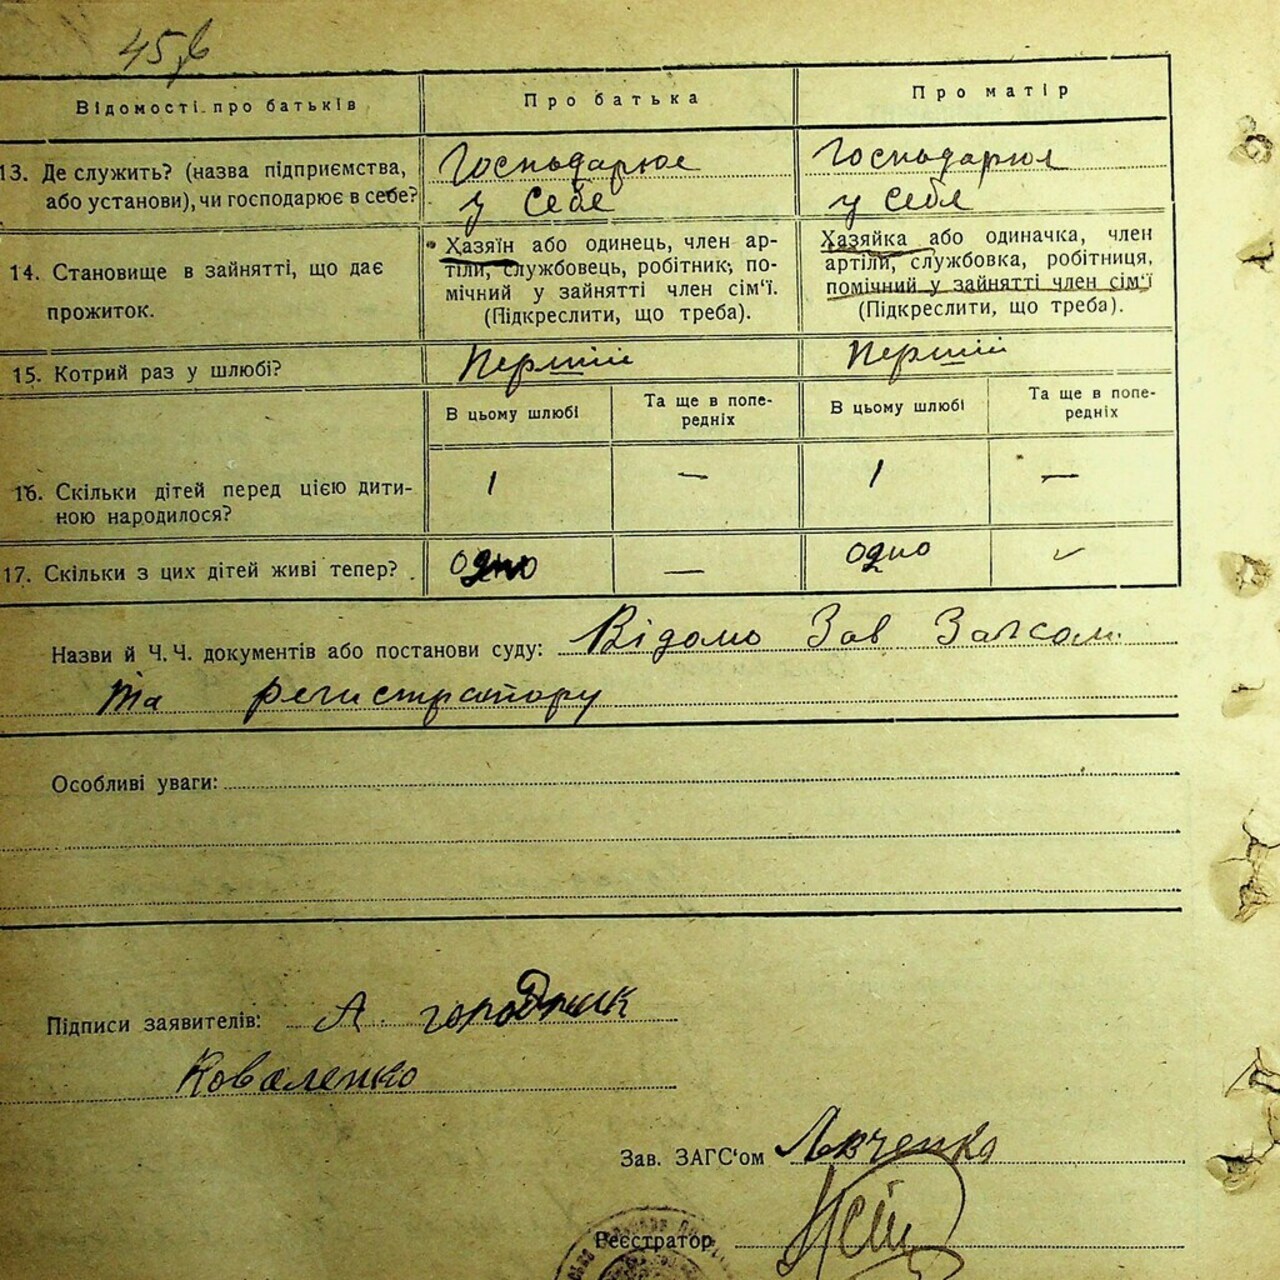 45
Відомості про батьків
Про батька
Про матір
13. Де служить? (назва підприємства,
або установи), чи господарює в себе?
Господарює
у себе
Господарюя
у себя
14. Становище в зайнятті, що дає
прожиток.
Хазяїн або одинець, член ар-
тіли, службовець, робітник, по-
мічний у зайнятті член сім'ї.
(Підкреслити, що треба).
Хазяйка або одиначка, член
артіли, службовка, робітниця,
помічний у зайнятті член сім'ї
(Підкреслити, що треба).
15. Котрий раз у шлюбі?
Перший
Перший
В цьому шлюбі
Та ще в попе-
редніх
В цьому шлюбі
Та ще в попе-
редніх
16. Скільки дітей перед цією дити-
ною народилося?
1 — 1 —
17. Скільки з цих дітей живі тепер?
одно — одно
Назви й Ч. Ч. документів або постанови суду: Відомо Зав Загсом
та регистратору
Особливі уваги:
Підписи заявителів: А. городник
Коваленко
Зав. ЗАГС'ом
Реєстратор